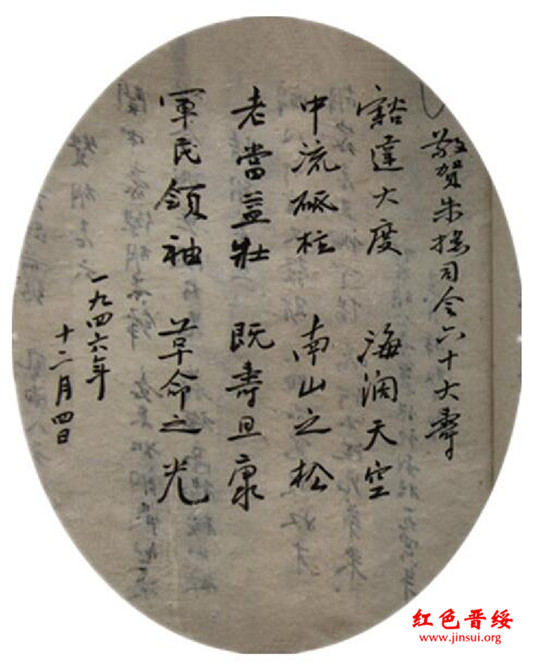 敬贺朱总司令六十大寿
豁達大度 海阔天空
中流砥柱 南山之松
老當益壯 既寿且康
軍民領袖 革命之光
一九四六年
十二月四日
红色晋绥
www.jinsui.org